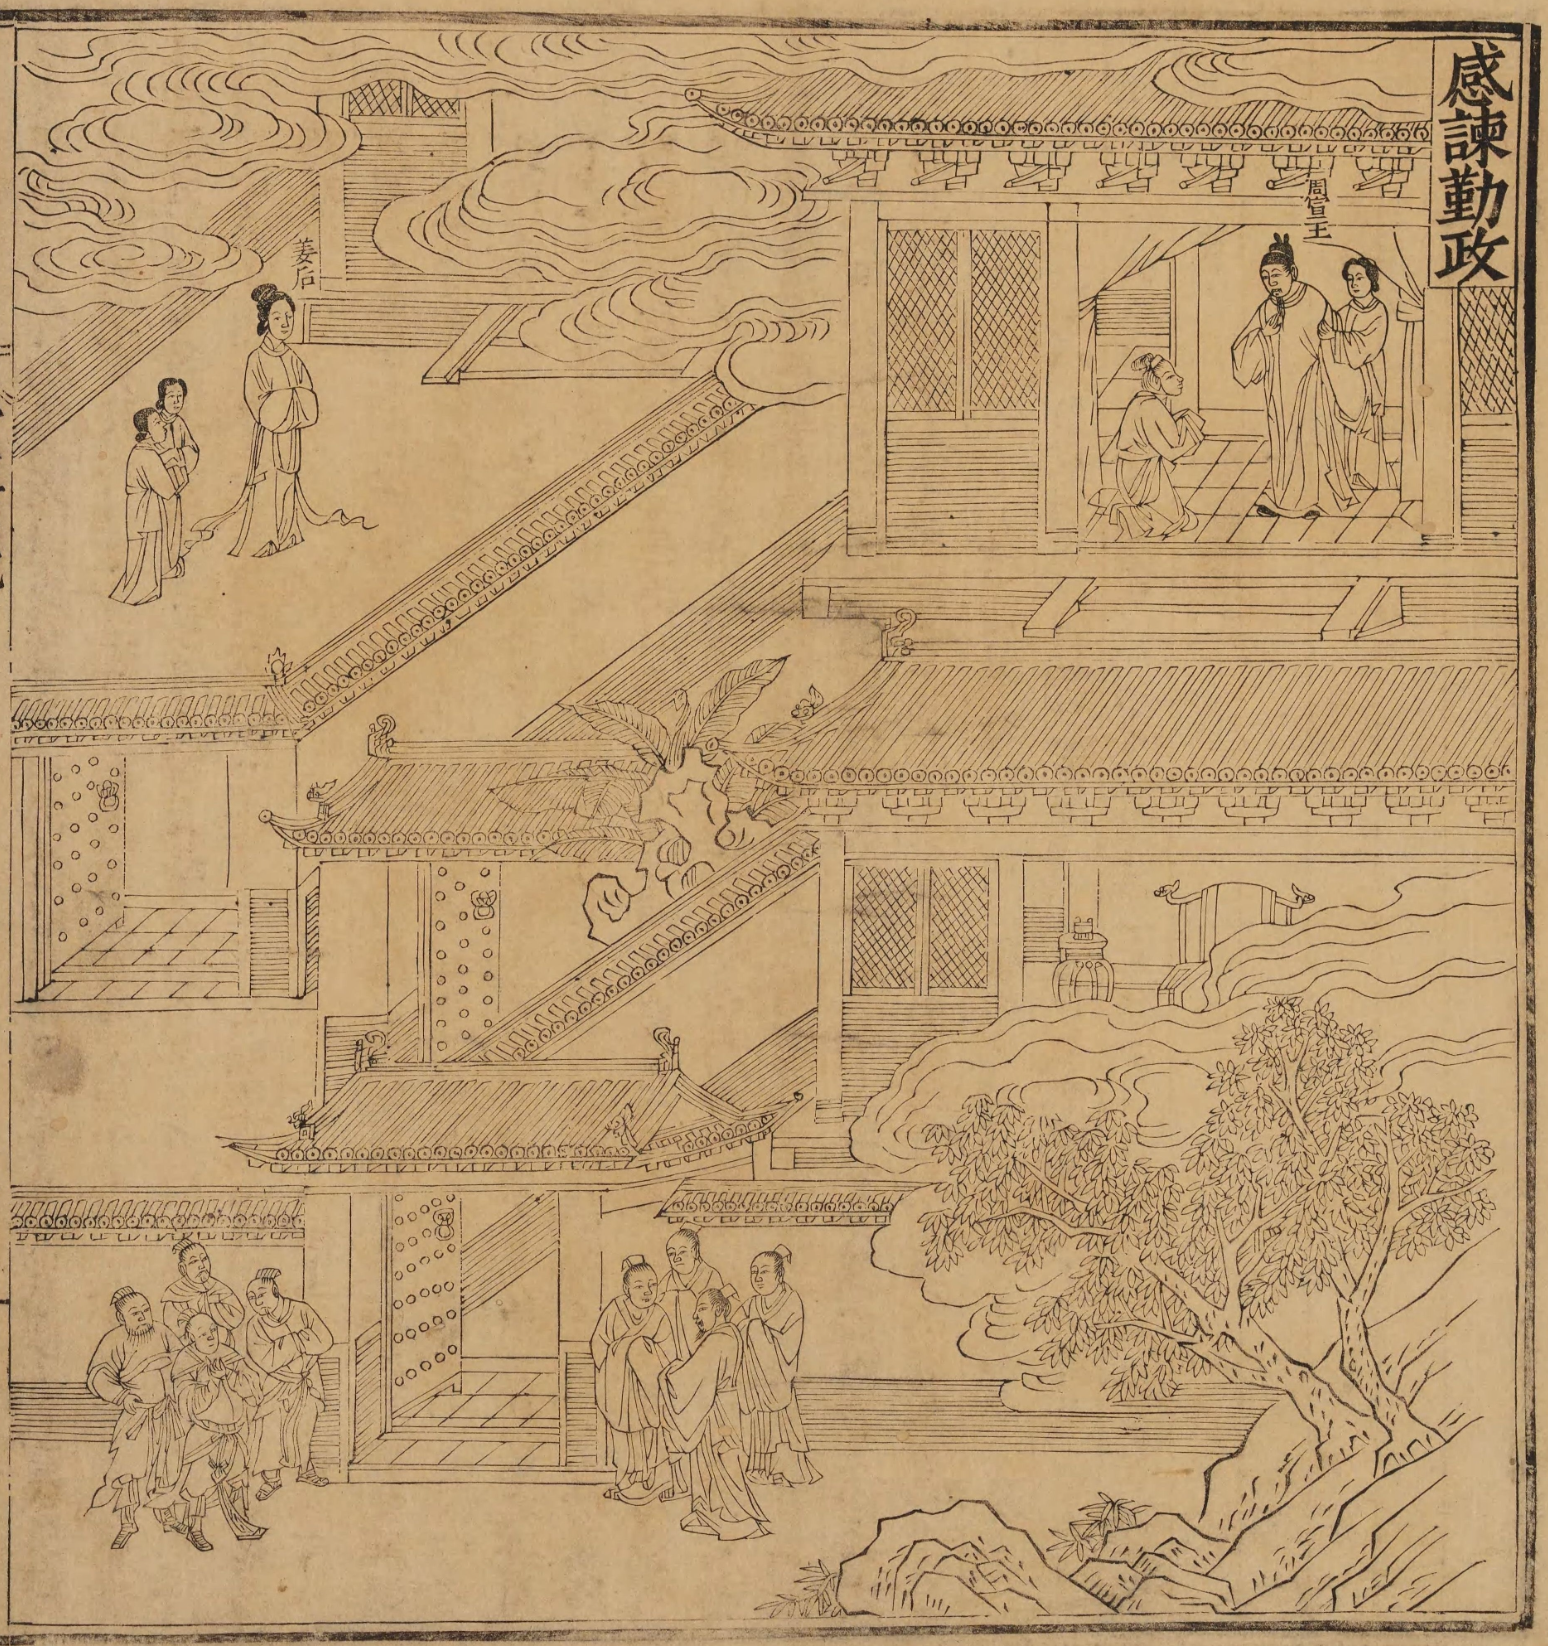 感諫勤政
周宣王
姜后